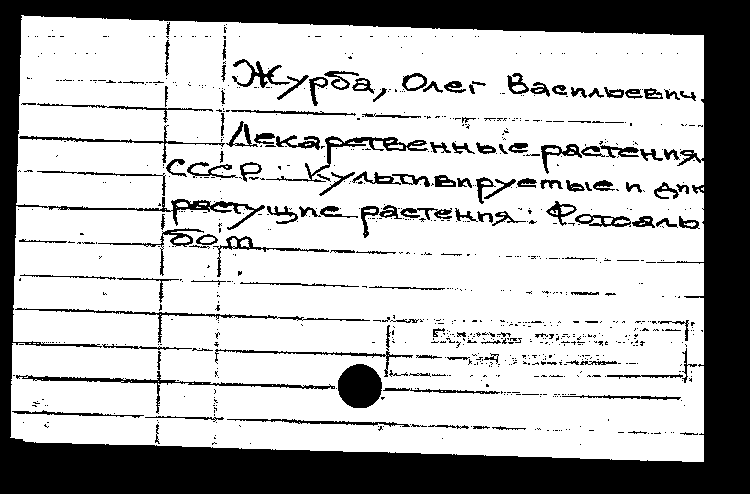 Журба, Олег Васильевич.
Лекарственные растения
СССР: Культивируемые и дик
растущие растения: Фотоаль-
бом.